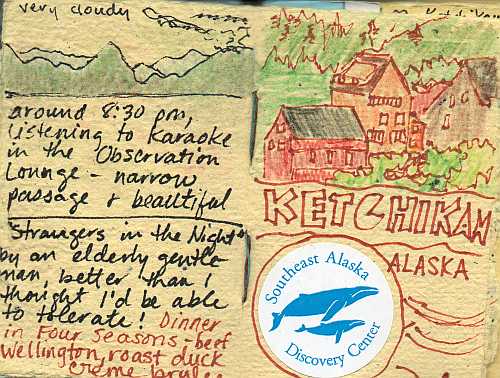 very cloudy
around 8:30 pm,
listening to Karaoke
in the Observation
Lounge - narrow
passage & beautiful
"Strangers in the Night"
by an elderly gentle
man, better than I
thought I'd be able
to tolerate! Dinner
in Four Seasons - beef
Wellington, roast duck
creme brulee
KETCHIKAN
ALASKA
Southeast Alaska
Discovery Center